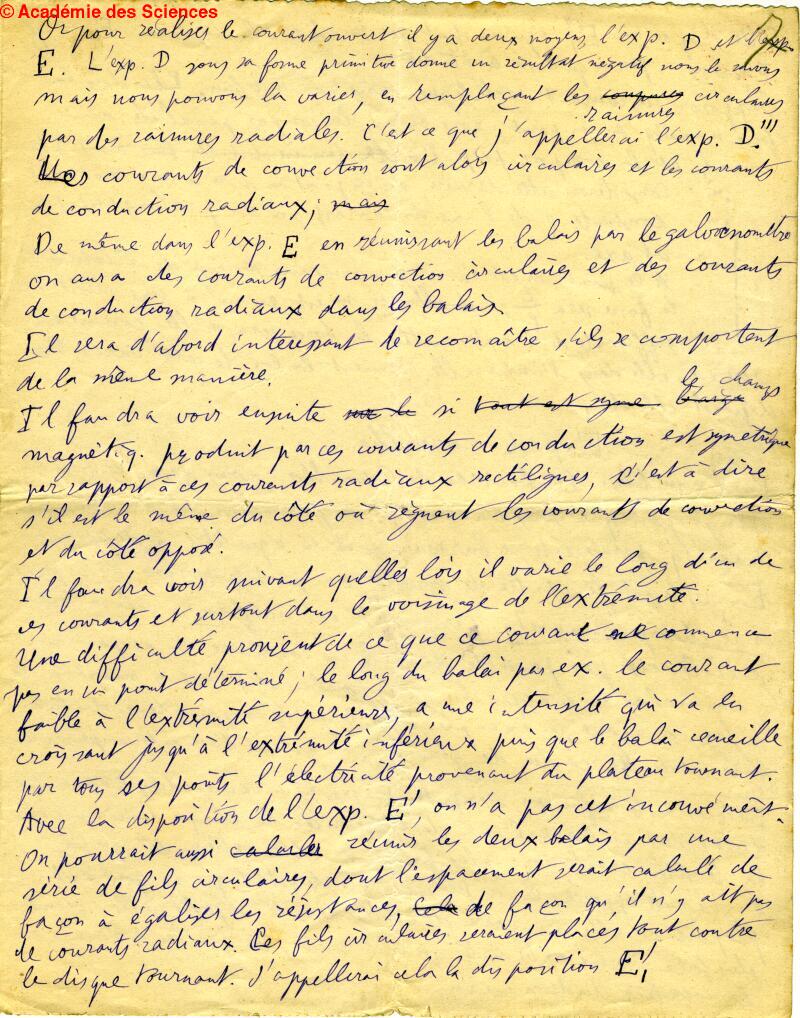 © Académie des Sciences
Or pour réaliser le courant ouvert il y a deux moyens, l'exp. D et l'exp.
E. L'exp. D sous sa forme primitive donne un résultat négatif nous le savons
mais nous pouvons la varier, en remplaçant les coupures circulaires
rainures
par des rainures radiales. C'est ce que j'appellerai l'exp. D'''.
Les courants de convection sont alors circulaires et les courants
de conduction radiaux; mais
De même dans l'exp. E en réunissant les balais par le galvanomètre
on aura des courants de convection circulaires et des courants
de conduction radiaux dans les balais.
Il sera d'abord intéressant de reconnaître s'ils se comportent
de la même manière.
le champ
Il faudra voir ensuite sur le si tout est syme
magnétiq. produit par ces courants de conduction est symétrique
par rapport à ces courants radiaux rectilignes, c'est à dire
s'il est le même du côté où règnent les courants de convection
et du côté opposé.
Il faudra voir suivant quelles lois il varie le long d'un de
ces courants et surtout dans le voisinage de l'extrémité.
Une difficulté provient de ce que ce courant ne commence
pas en un point déterminé; le long du balai par ex. le courant
faible à l'extrémité supérieure, a une intensité qui va en
croissant jusqu'à l'extrémité inférieure puis que le balai recueille
par tous ses points l'électricité provenant du plateau tournant.
Avec la disposition de l'exp. E', on n'a pas cet inconvénient.
On pourrait aussi calculer réunir les deux balais par une
série de fils circulaires, dont l'espacement serait calculé de
façon à égaliser les résistances, Cela de façon qu'il n'y ait pas
de courants radiaux. Ces fils circulaires seraient placés tout contre
le disque tournant. J'appellerai cela la disposition E'₁